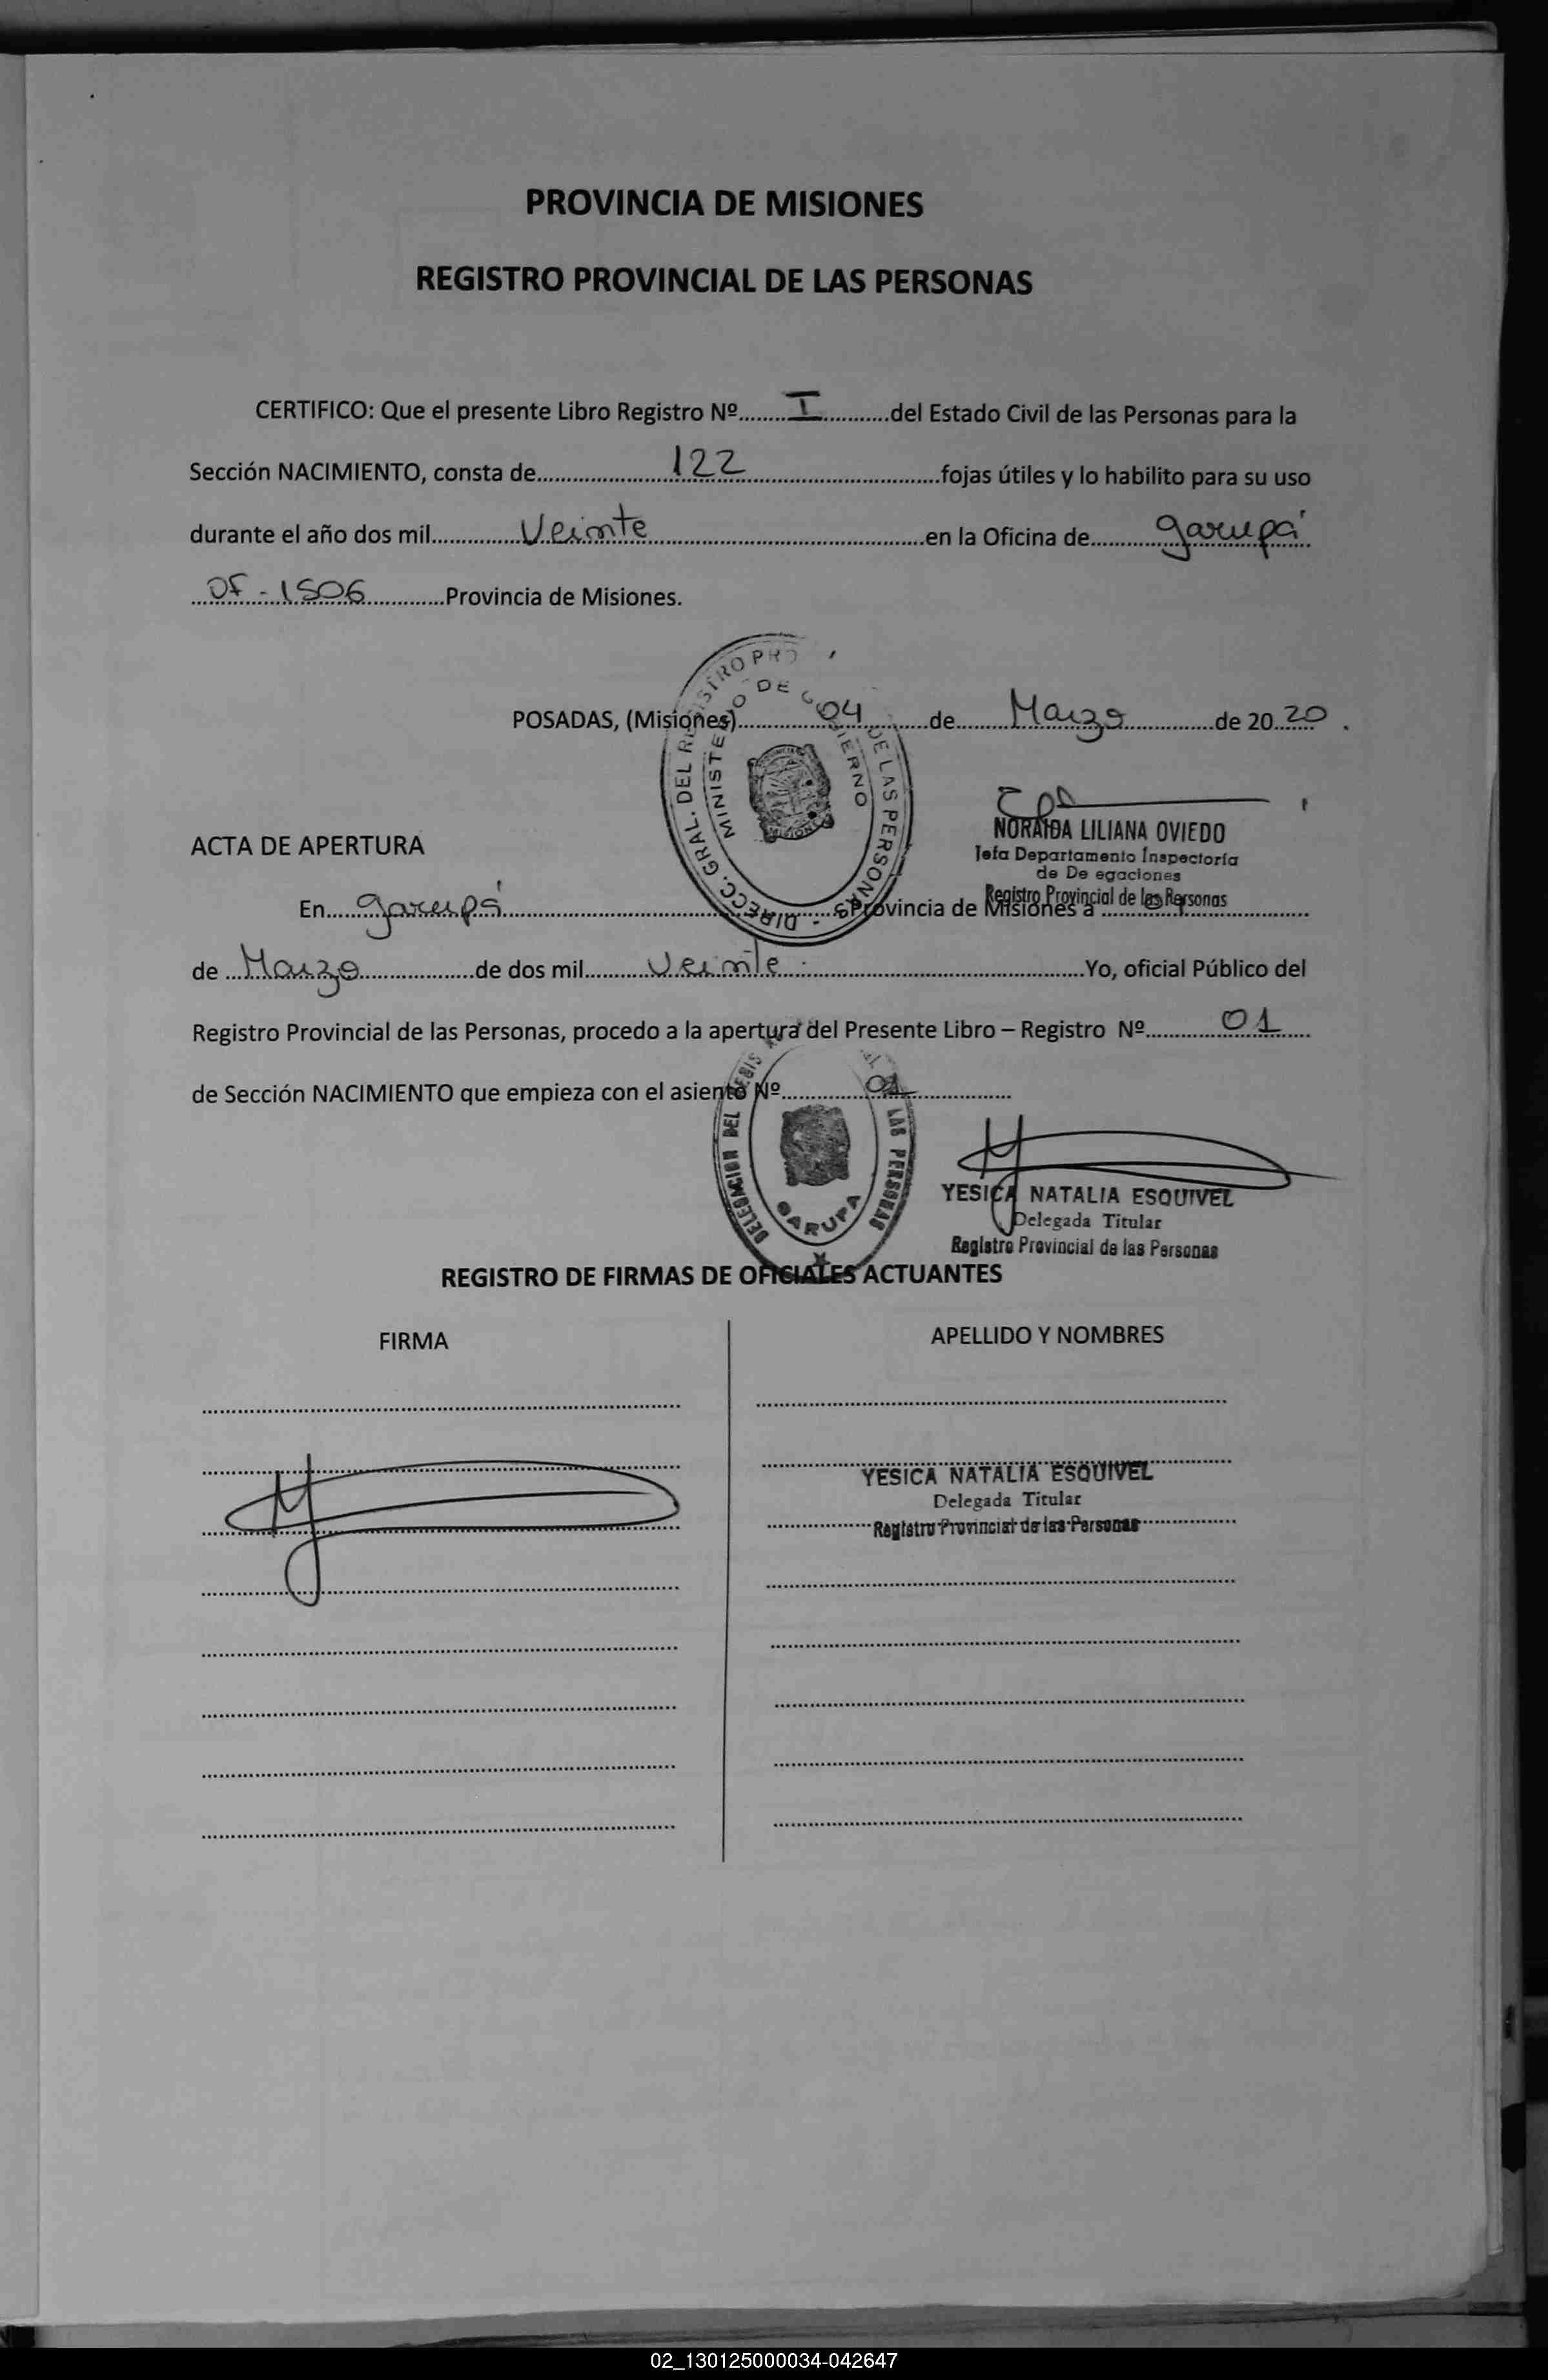 PROVINCIA DE MISIONES
REGISTRO PROVINCIAL DE LAS PERSONAS
CERTIFICO: Que el presente Libro Registro Nº........I...........del Estado Civil de las Personas para la
Sección NACIMIENTO, consta de........................122................................fojas útiles y lo habilito para su uso
durante el año dos mil...............Veinte..............................................en la Oficina de............garupá
OF-1506.............Provincia de Misiones.
POSADAS, (Misiones)..............04...........de.........Marzo...............de 20 20.
DIRECC. GRAL. DEL REGISTRO PRO DE LAS PERSONAS
MINISTERIO DE GOBIERNO
MISIONES
NORAIDA LILIANA OVIEDO
Jefa Departamento Inspectoría
de De egaciones
Registro Provincial de las Personas
ACTA DE APERTURA
En.....garupá..........................................Provincia de Misiones a
de ...Marzo....................de dos mil..........Veinte..................................................Yo, oficial Público del
Registro Provincial de las Personas, procedo a la apertura del Presente Libro – Registro Nº.............01.....
de Sección NACIMIENTO que empieza con el asiento Nº..............01.................
DELEGACION DEL LAS PERSONAS
GARUPA
YESICA NATALIA ESQUIVEL
Delegada Titular
Registro Provincial de las Personas
REGISTRO DE FIRMAS DE OFICIALES ACTUANTES
FIRMA APELLIDO Y NOMBRES
YESICA NATALIA ESQUIVEL
Delegada Titular
Registro Provincial de las Personas
02_130125000034-042647